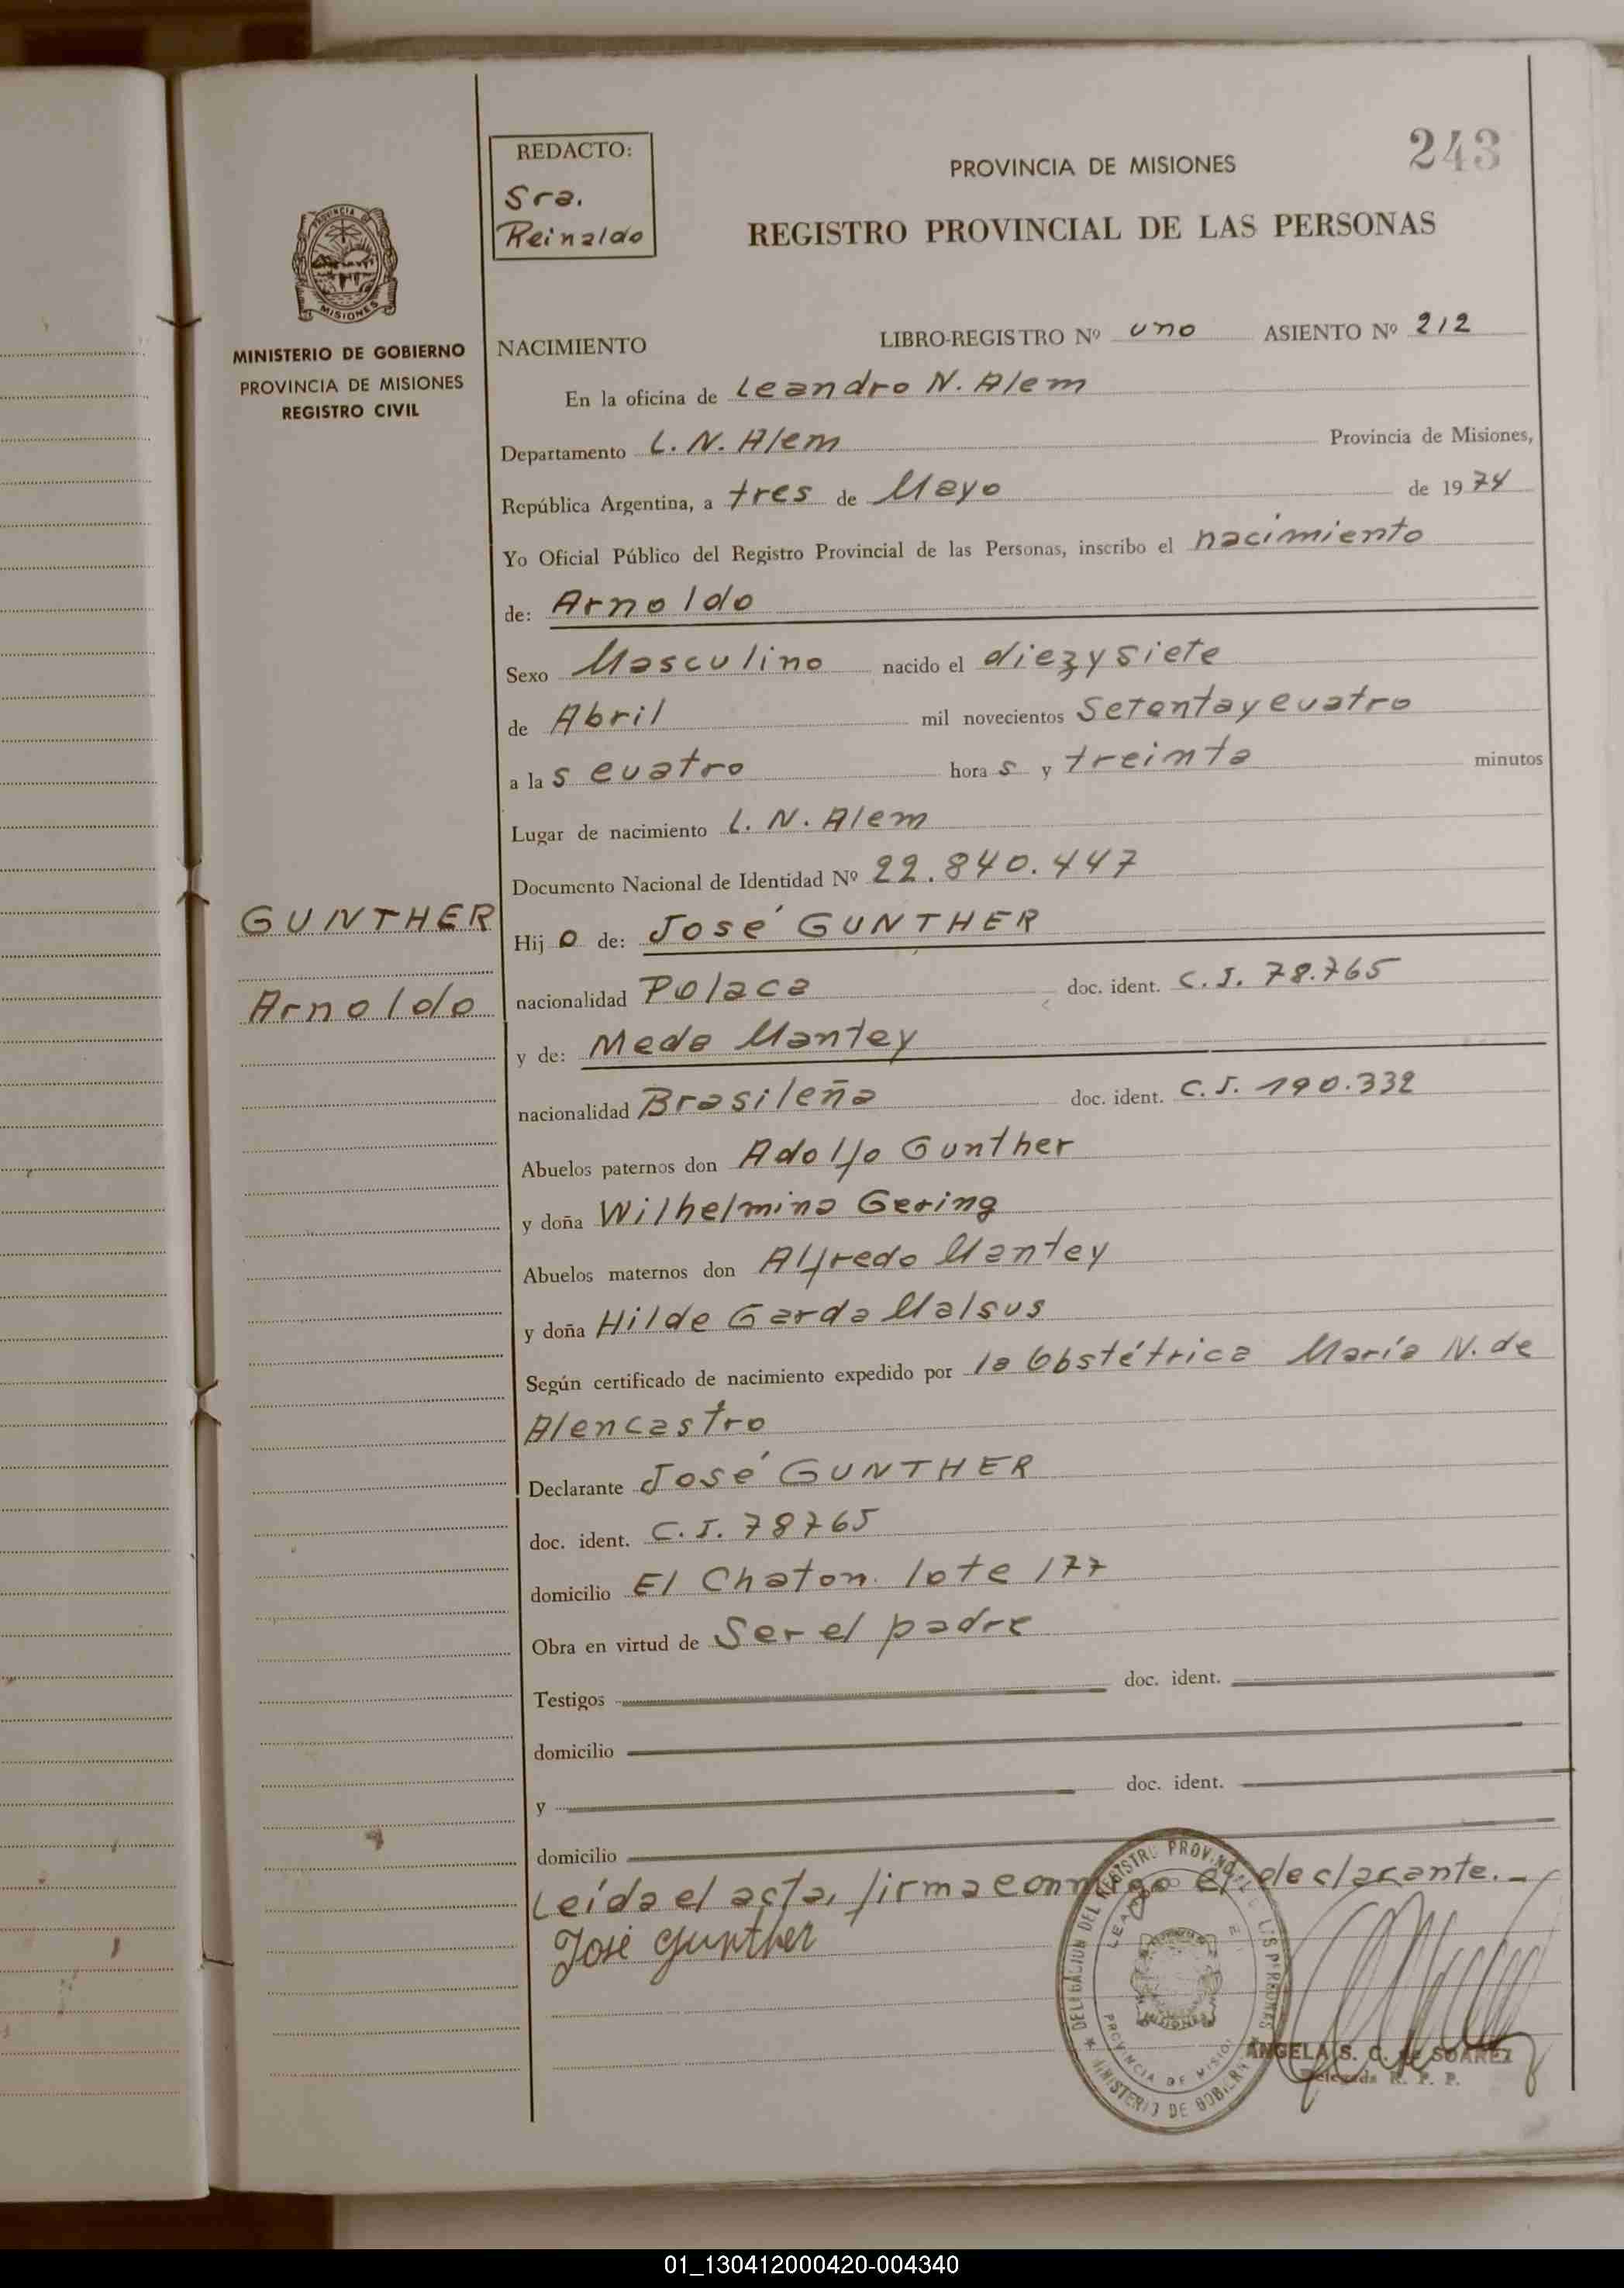 243
REDACTO:
Sra.
Reinaldo
PROVINCIA DE MISIONES
REGISTRO PROVINCIAL DE LAS PERSONAS
PROVINCIA DE
MISIONES
MINISTERIO DE GOBIERNO
PROVINCIA DE MISIONES
REGISTRO CIVIL
NACIMIENTO LIBRO-REGISTRO Nº uno ASIENTO Nº 212
En la oficina de Leandro N. Alem
Departamento L. N. Alem Provincia de Misiones,
República Argentina, a tres de Mayo de 1974
Yo Oficial Público del Registro Provincial de las Personas, inscribo el nacimiento
de: Arnoldo
Sexo Masculino nacido el diezysiete
de Abril mil novecientos Setentaycuatro
a las cuatro horas y treinta minutos
Lugar de nacimiento L. N. Alem
Documento Nacional de Identidad Nº 22.840.447
GUNTHER
Arnoldo
Hijo de: José GUNTHER
nacionalidad Polaca doc. ident. C. I. 78.765
y de: Meda Mantey
nacionalidad Brasileña doc. ident. C. I. 190.332
Abuelos paternos don Adolfo Gunther
y doña Wilhelmina Gering
Abuelos maternos don Alfredo Mantey
y doña Hilde Garda Malsus
Según certificado de nacimiento expedido por la Obstétrica María N. de
Alencastro
Declarante José GUNTHER
doc. ident. C. I. 78765
domicilio El Chaton lote 177
Obra en virtud de Ser el padre
Testigos doc. ident.
domicilio
y doc. ident.
domicilio
Leída el acta, firma conmigo el declarante.-
José Gunther
DELEGACION DEL REGISTRO PROVINCIAL DE LAS PERSONAS
MINISTERIO DE GOBIERNO
PROVINCIA DE MISIONES
ANGELA S. C. de SUAREZ
Delegada R. P. P.
01_130412000420-004340